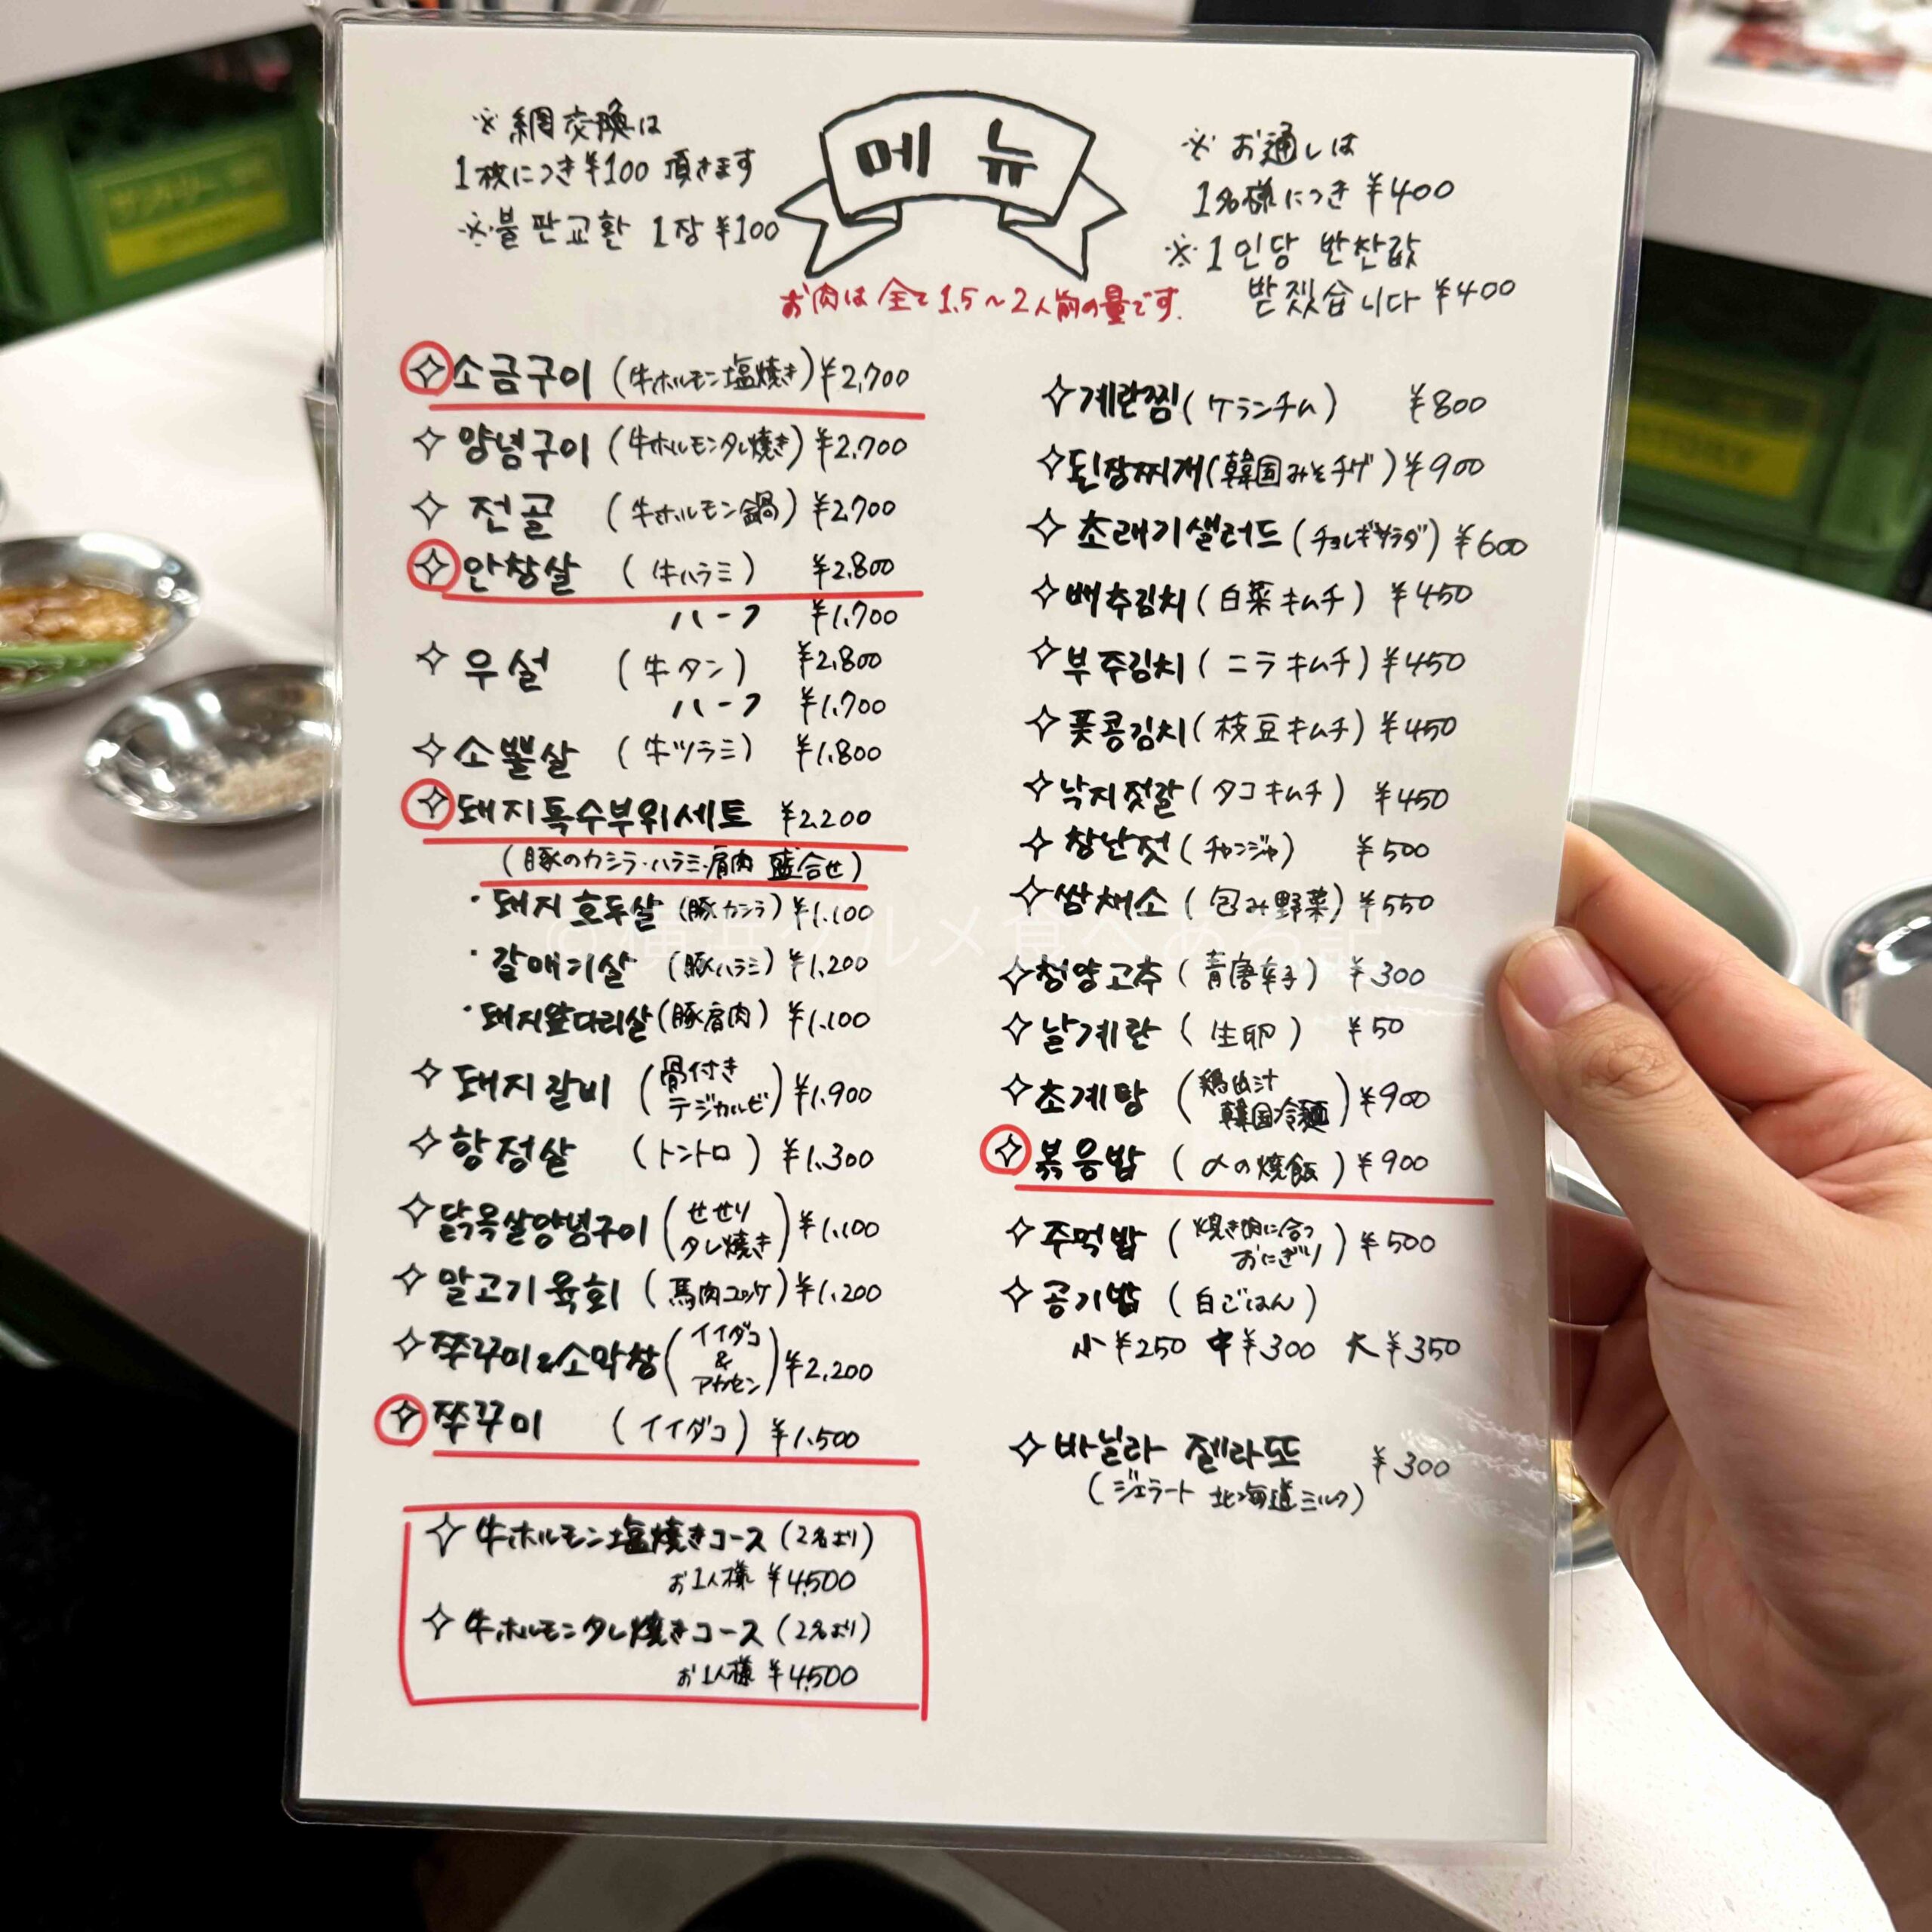 ※ 網交換は
1枚につき¥100 頂きます
※불판교환 1장 ¥100
메뉴
※ お通しは
1名様につき ¥400
※1인당 반찬값
받겠습니다 ¥400
お肉は全て1.5〜2人前の量です.
✧소금구이 (牛ホルモン塩焼き) ¥2,700
✧양념구이 (牛ホルモンタレ焼き) ¥2,700
✧전골 (牛ホルモン鍋) ¥2,700
✧안창살 (牛ハラミ) ¥2,800
ハーフ ¥1,700
✧우설 (牛タン) ¥2,800
ハーフ ¥1,700
✧소뽈살 (牛ツラミ) ¥1,800
✧돼지특수부위세트 ¥2,200
(豚のカシラ・ハラミ・肩肉 盛合せ)
・돼지호두살 (豚カシラ) ¥1,100
・갈매기살 (豚ハラミ) ¥1,200
・돼지앞다리살 (豚肩肉) ¥1,100
✧돼지갈비 (骨付きテジカルビ) ¥1,900
✧항정살 (トントロ) ¥1,300
✧닭목살양념구이 (せせりタレ焼き) ¥1,100
✧말고기육회 (馬肉ユッケ) ¥1,200
✧쭈꾸미&소막창 (イイダコ&アカセン) ¥2,200
✧쭈꾸미 (イイダコ) ¥1,500
✧牛ホルモン塩焼きコース (2名より)
お1人様 ¥4,500
✧牛ホルモンタレ焼きコース (2名より)
お1人様 ¥4,500
✧계란찜 (ケランチム) ¥800
✧된장찌개 (韓国みそチゲ) ¥900
✧초래기샐러드 (チョレギサラダ) ¥600
✧배추김치 (白菜キムチ) ¥450
✧부추김치 (ニラキムチ) ¥450
✧풋콩김치 (枝豆キムチ) ¥450
✧낙지젓갈 (タコキムチ) ¥450
✧창난젓 (チャンジャ) ¥500
✧쌈채소 (包み野菜) ¥550
✧청양고추 (青唐辛子) ¥300
✧날계란 (生卵) ¥50
✧초계탕 (鶏出汁韓国冷麺) ¥900
✧볶음밥 (〆の焼飯) ¥900
✧주먹밥 (焼き肉に合うおにぎり) ¥500
✧공기밥 (白ごはん)
小¥250 中¥300 大¥350
✧바닐라 젤라또 ¥300
(ジェラート 北海道ミルク)
© 横浜グルメ食べある記
サントリー